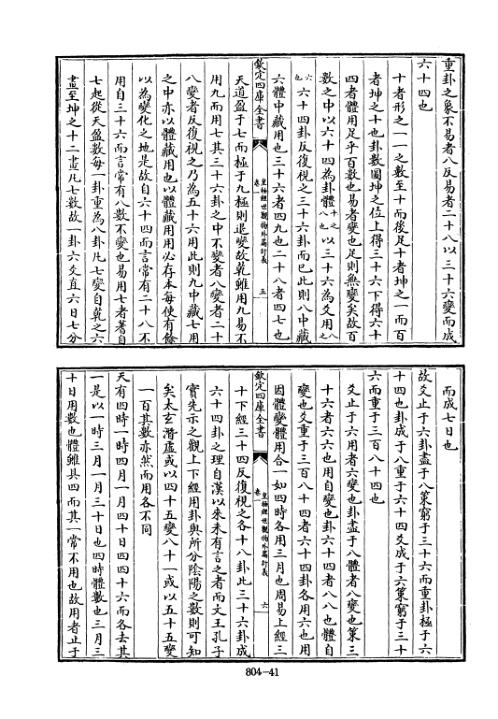 重卦之象不易者八反易者二十八以三十六變而成
六十四也
十者形之一一之數至十而後足十者坤之一而百
者坤之十也卦數圖坤之位上得三十六下得六十
四者體用足乎百數也易者變也足則無變矣故百
數之中以六十四為卦體十之八也以三十六為爻用六之六也
六十四卦反復視之三十六卦而已此則八中藏
六體中藏用也三十六者四九也二十八者四七也
欽定四庫全書
皇極經世觀物外篇衍義
卷一
五
天道盈于七而極于九極則退變故乾雖用九易不
用九而用七其三十六卦之中不變者八變者二十
八變者反復視之乃為五十六用此則九中藏七用
之中亦以體藏用也以體藏用用必存本每使有餘
以為變化之地是故自六十四而言常有二十八不
用自三十六而言常有八數不變也易用七者蓍自
七起從天盈數每一卦重為八卦凡七變自乾之六
畫至坤之十二畫凡七數故一卦六爻直六日七分
而成七日也
故爻止于六卦盡于八策窮于三十六而重卦極于六
十四也卦成于八重于六十四爻成于六策窮于三十
六而重于三百八十四也
爻止于六用者六變也卦盡于八體者八變也策三
十六者六六也用自變也卦六十四者八八也體自
變也爻重于三百八十四者六十四卦各用六也用
因體變體用合一如四時各用三月也周易上經三
欽定四庫全書
皇極經世觀物外篇衍義
卷一
六
十下經三十四反復視之各十八卦此三十六卦成
六十四卦之理自漢以來未有言之者而文王孔子
實先示之觀上下經用卦與所分陰陽之數則可知
矣太玄潛虛或以四十五變八十一或以五十五變
一百其數亦然而用各不同
天有四時一時四月一月四十日四四十六而各去其
一是以一時三月一月三十日也四時體數也三月三
十日用數也體雖具四而其一常不用也故用者止于
804-41